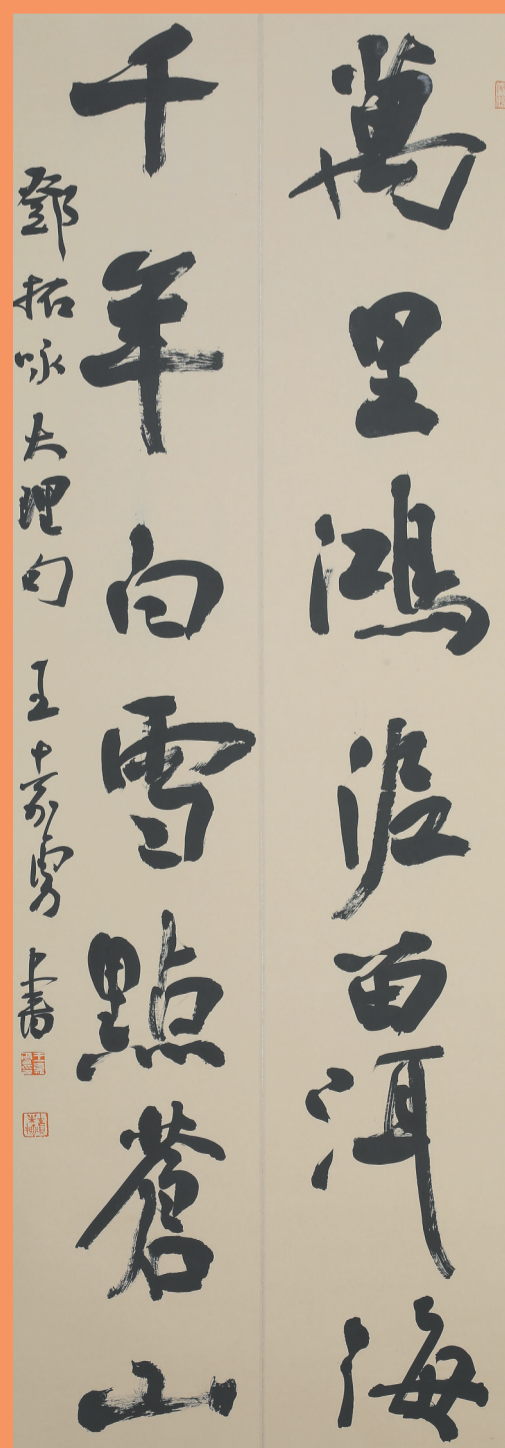 萬里鴻泥留洱海
千年白雪點蒼山
鄧拓咏大理句 王嘉勇書